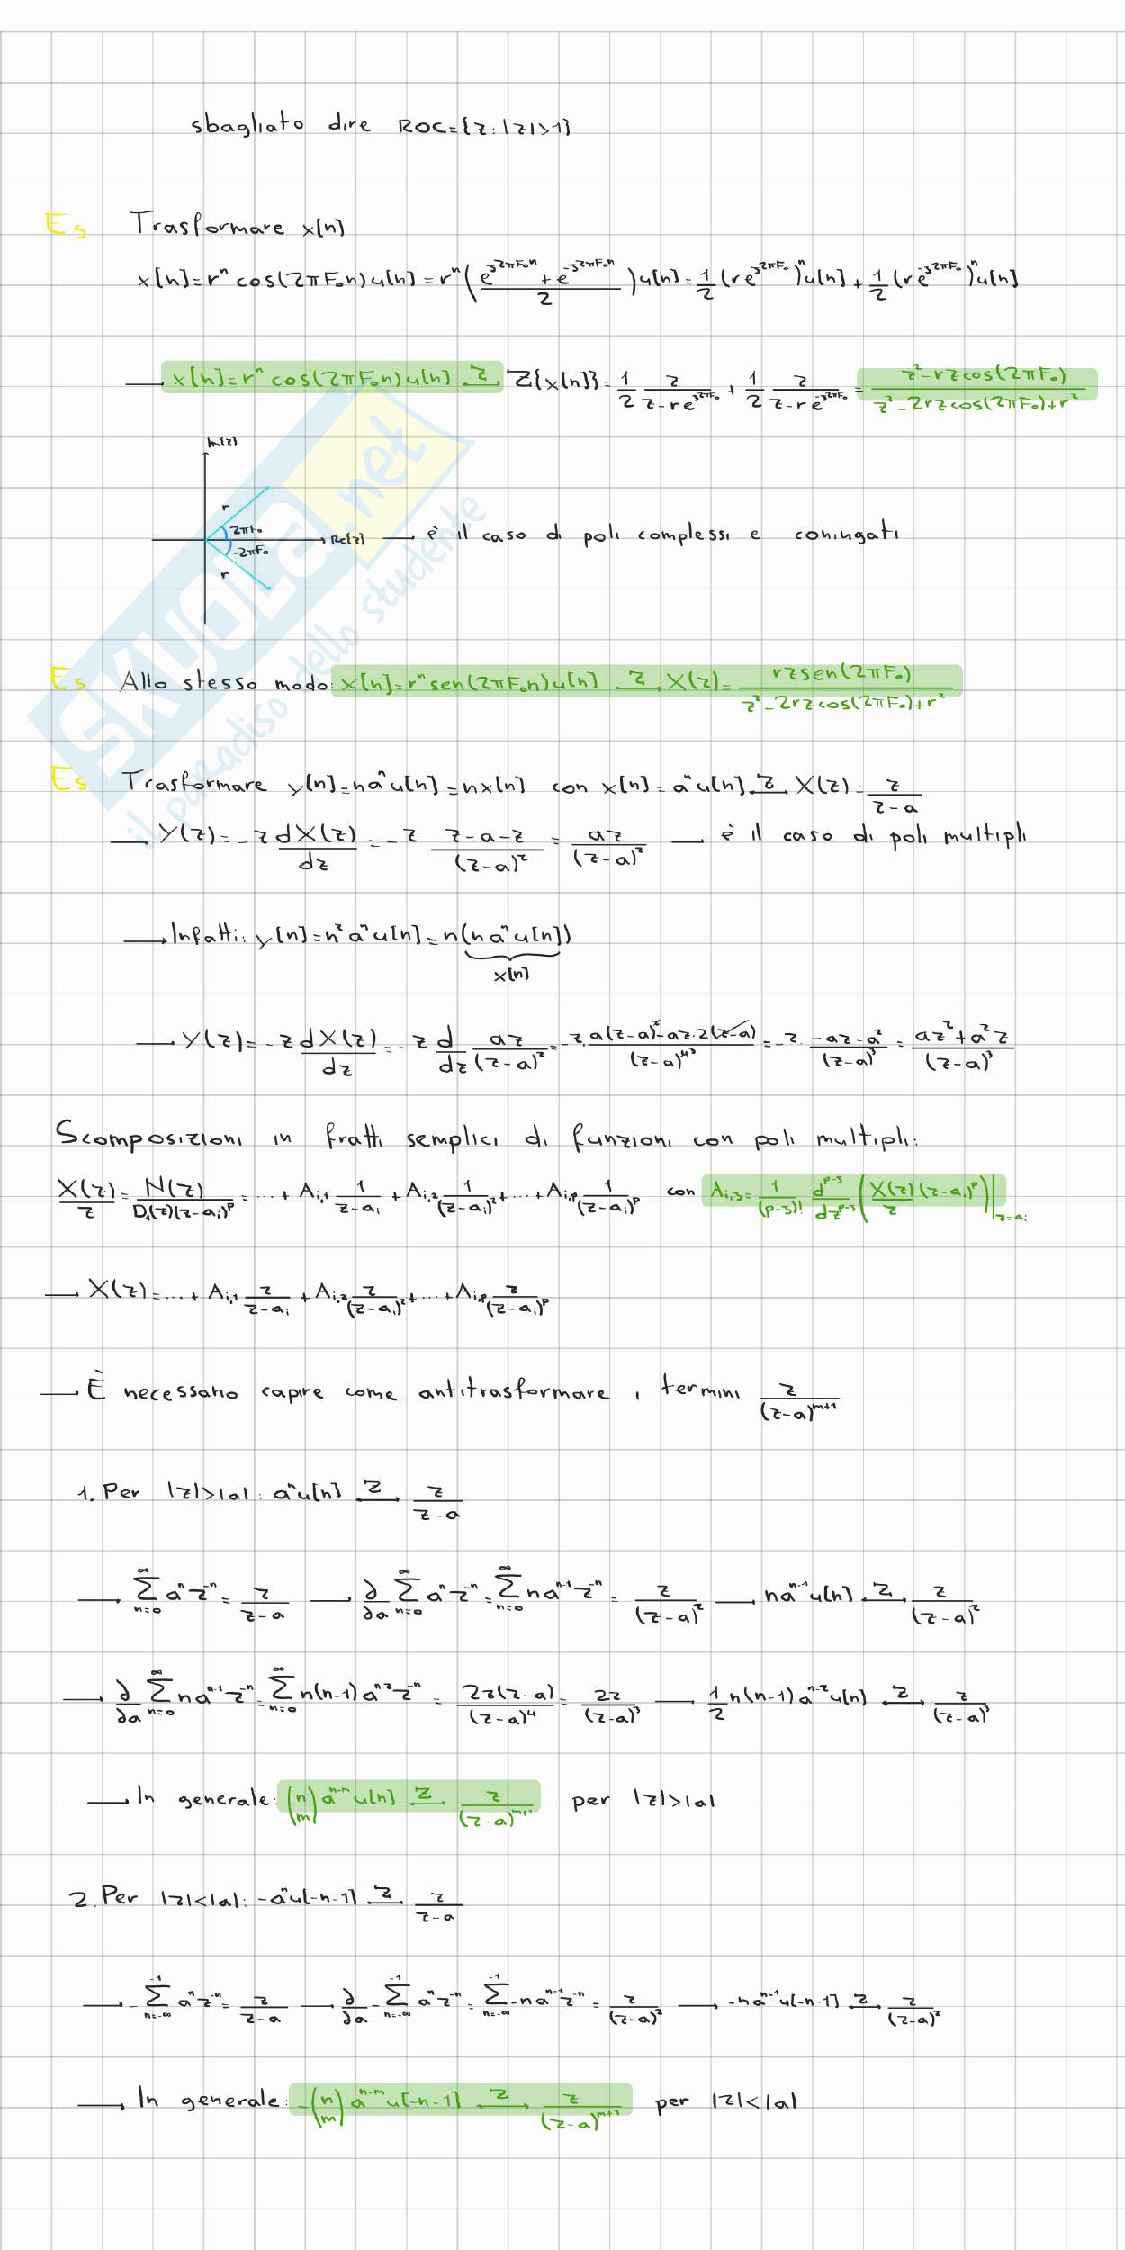 sbagliato dire ROC={z:|z|>1}
Es Trasformare x[n]
x[n]=rⁿ cos(2πF₀n)u[n]=rⁿ((e^{j2πF₀n}+e^{-j2πF₀n})/2)u[n]=1/2(re^{j2πF₀})ⁿu[n]+1/2(re^{-j2πF₀})ⁿu[n]
→ x[n]=rⁿ cos(2πF₀n)u[n] →Z Z{x[n]}=1/2 z/(z-re^{j2πF₀}) + 1/2 z/(z-re^{-j2πF₀}) = (z²-rz cos(2πF₀))/(z²-2rz cos(2πF₀)+r²)
Im[z]
r
2πF₀
Re[z] → è il caso di poli complessi e coniugati
-2πF₀
r
Es Allo stesso modo: x[n]=rⁿ sen(2πF₀n)u[n] →Z X(z)=(rz sen(2πF₀))/(z²-2rz cos(2πF₀)+r²)
Es Trasformare y[n]=naⁿu[n]=nx[n] con x[n]=aⁿu[n] →Z X(z)=z/(z-a)
→ Y(z)=-z dX(z)/dz=-z (z-a-z)/(z-a)²=az/(z-a)² → è il caso di poli multipli
→ Infatti: y[n]=n²aⁿu[n]=n(naⁿu[n])
x[n]
→ Y(z)=-z dX(z)/dz=-z d/dz az/(z-a)²=-z·(a(z-a)²-az·2(z-a))/(z-a)^{4 3}=-z·(-az-a²)/(z-a)³=(az²+a²z)/(z-a)³
Scomposizioni in fratti semplici di funzioni con poli multipli:
X(z)/z=N(z)/(D₁(z)(z-aᵢ)^p)=...+A_{i,1} 1/(z-aᵢ)+A_{i,2} 1/(z-aᵢ)²+...+A_{i,p} 1/(z-aᵢ)^p con A_{i,s}=1/(p-s)! d^{p-s}/dz^{p-s}(X(z)/z (z-aᵢ)^p)|_{z=aᵢ}
→ X(z)=...+A_{i,1} z/(z-aᵢ)+A_{i,2} z/(z-aᵢ)²+...+A_{i,p} z/(z-aᵢ)^p
→ È necessario capire come antitrasformare i termini z/(z-a)^{m+1}
1. Per |z|>|a|: aⁿu[n] →Z z/(z-a)
→ Σ_{n=0}^{∞} aⁿz⁻ⁿ=z/(z-a) → ∂/∂a Σ_{n=0}^{∞} aⁿz⁻ⁿ=Σ_{n=0}^{∞} na^{n-1}z⁻ⁿ=z/(z-a)² → na^{n-1}u[n] →Z z/(z-a)²
→ ∂/∂a Σ_{n=0}^{∞} na^{n-1}z⁻ⁿ=Σ_{n=0}^{∞} n(n-1)a^{n-2}z⁻ⁿ=2z(z-a)/(z-a)⁴=2z/(z-a)³ → 1/2 n(n-1)a^{n-2}u[n] →Z z/(z-a)³
→ In generale: (n m)a^{n-m}u[n] →Z z/(z-a)^{m+1} per |z|>|a|
2. Per |z|<|a|: -aⁿu[-n-1] →Z z/(z-a)
→ -Σ_{n=-∞}^{-1} aⁿz⁻ⁿ=z/(z-a) → ∂/∂a -Σ_{n=-∞}^{-1} aⁿz⁻ⁿ=Σ_{n=-∞}^{-1} -na^{n-1}z⁻ⁿ=z/(z-a)² → -na^{n-1}u[-n-1] →Z z/(z-a)²
→ In generale: -(n m)a^{n-m}u[-n-1] →Z z/(z-a)^{m+1} per |z|<|a|
SKUOLA.net
il paradiso dello studente